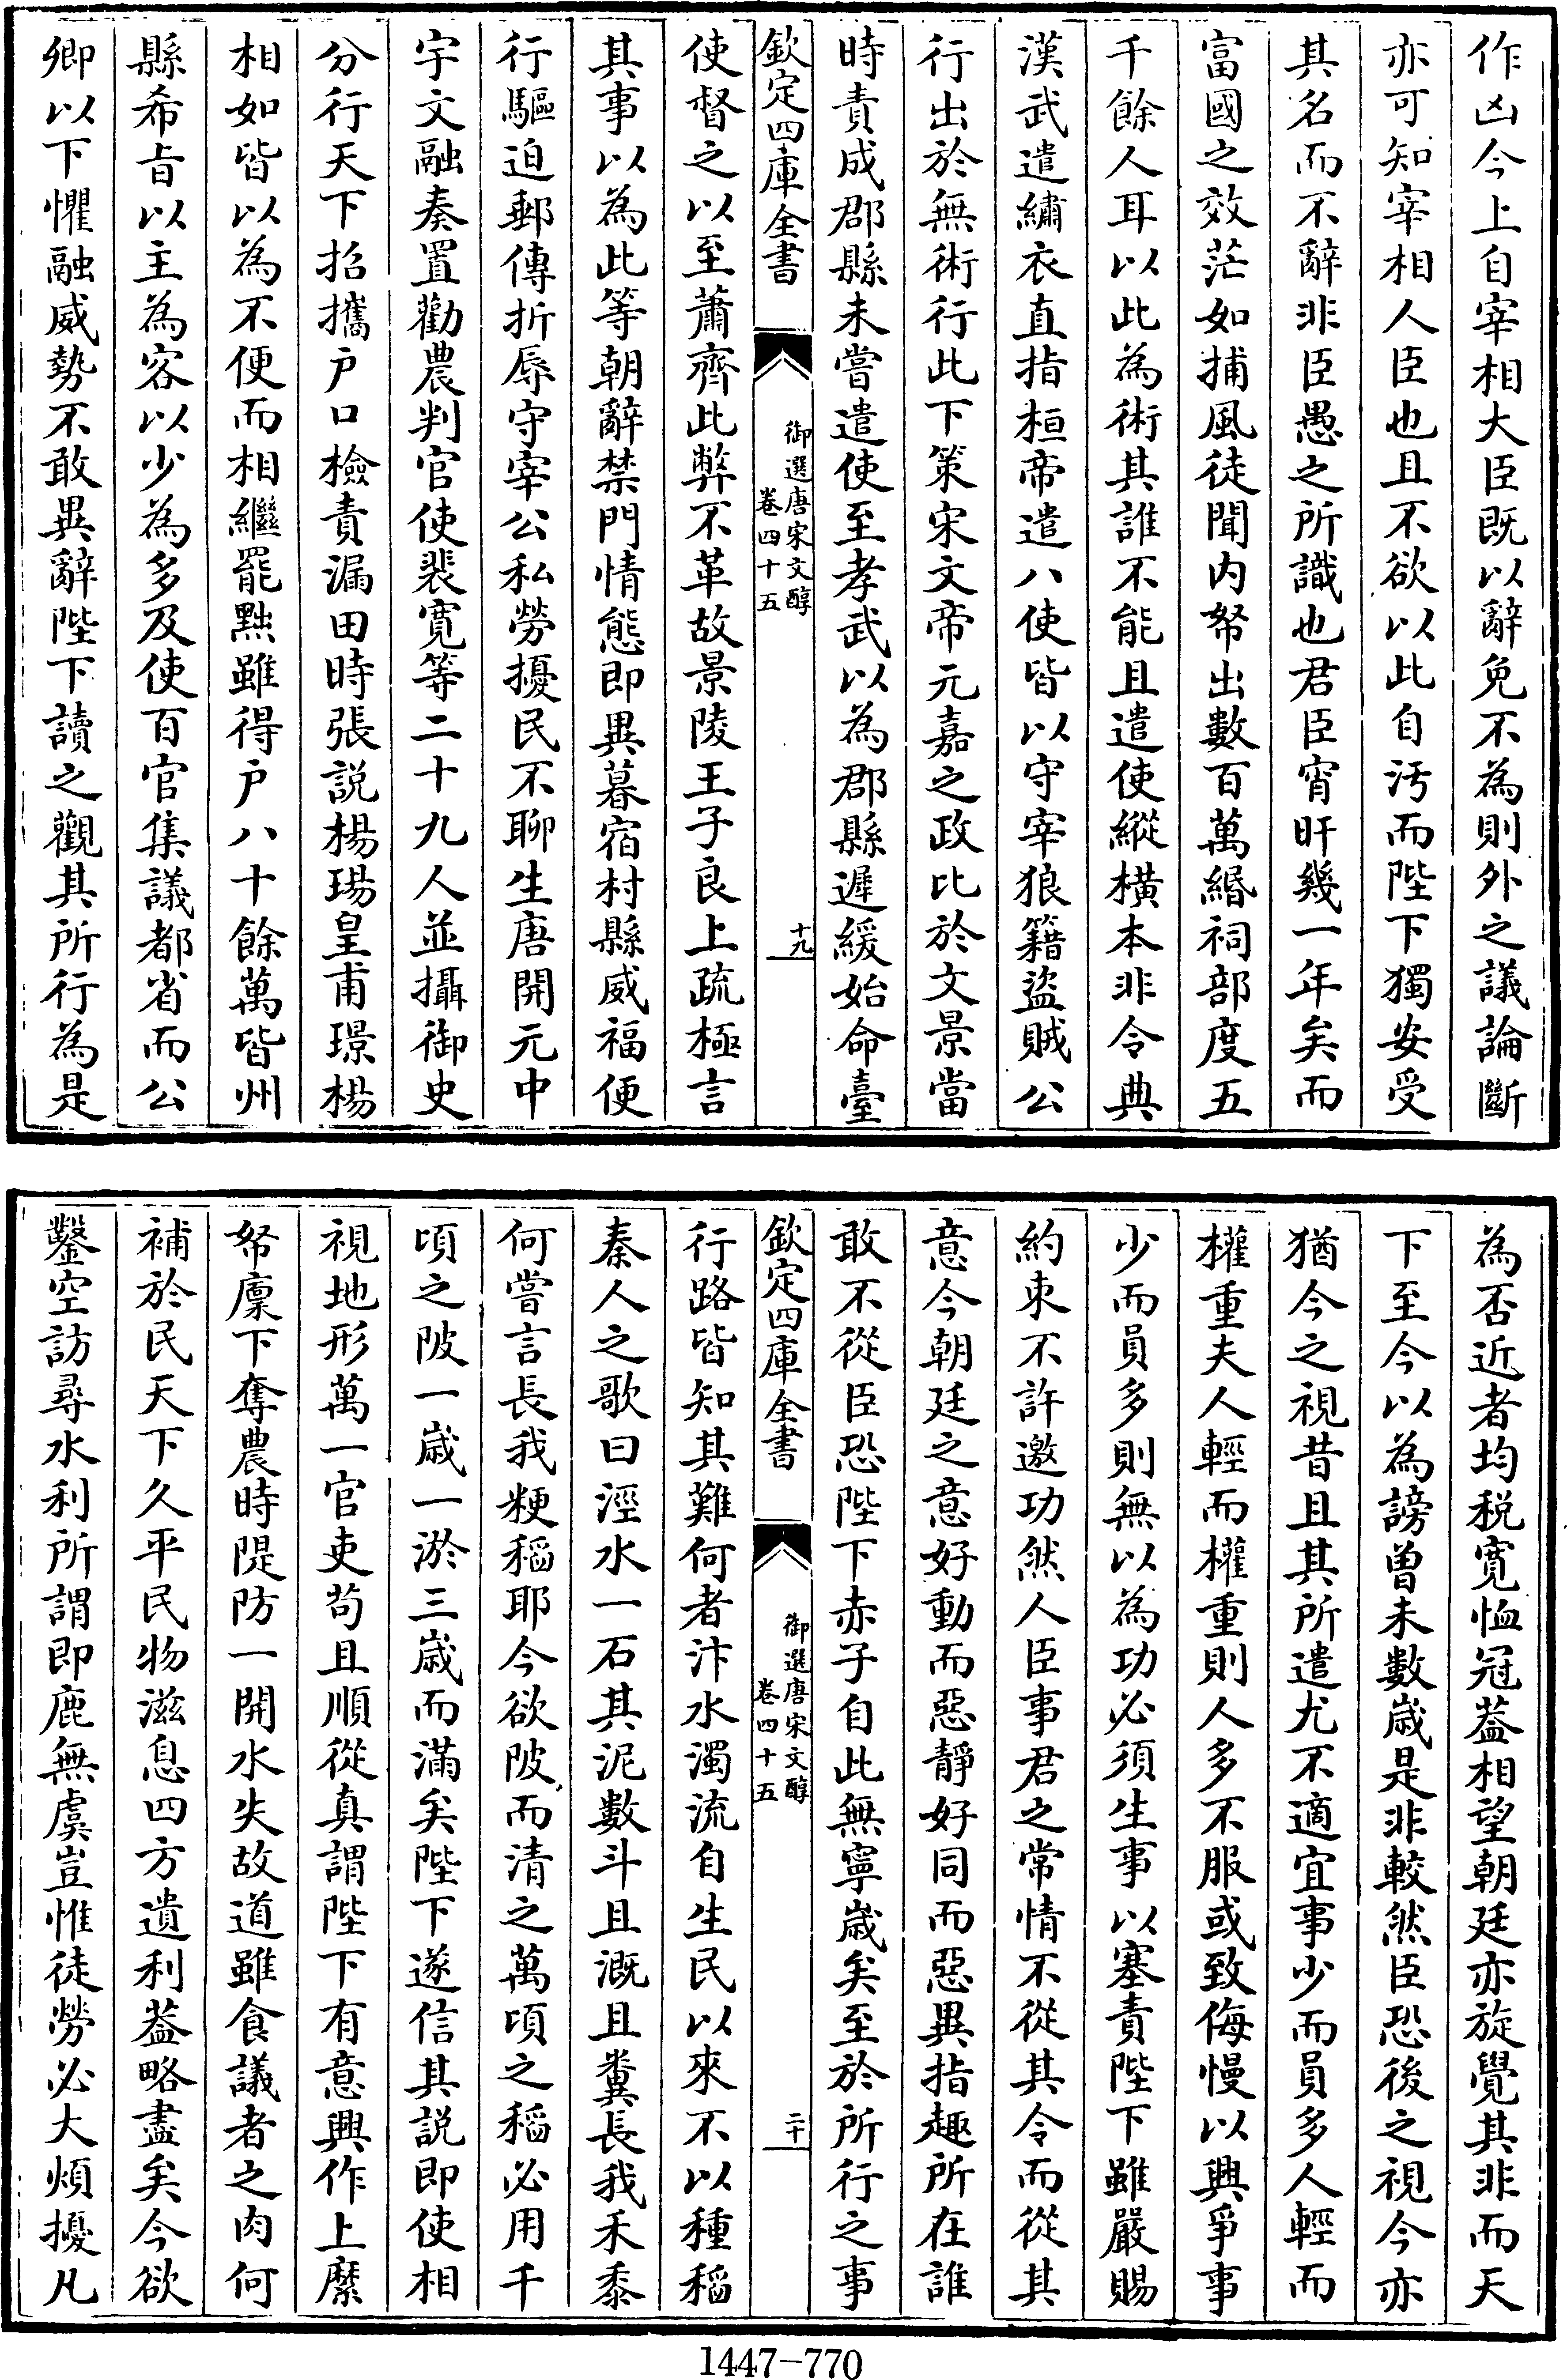 作凶今上自宰相大臣既以辭免不為則外之議論斷
亦可知宰相人臣也且不欲以此自汚而陛下獨安受
其名而不辭非臣愚之所識也君臣宵旰幾一年矣而
富國之效茫如捕風徒聞内帑出數百萬緡祠部度五
千餘人耳以此為術其誰不能且遣使縱橫本非令典
漢武遣繡衣直指桓帝遣八使皆以守宰狼籍盜賊公
行出於無術行此下策宋文帝元嘉之政比於文景當
時責成郡縣未嘗遣使至孝武以為郡縣遲緩始命臺
欽定四庫全書
御選唐宋文醇
卷四十五
十九
使督之以至蕭齊此弊不革故景陵王子良上疏極言
其事以為此等朝辭禁門情態即異暮宿村縣威福便
行驅迫郵傳折辱守宰公私勞擾民不聊生唐開元中
宇文融奏置勸農判官使裴寛等二十九人並攝御史
分行天下招攜户口檢責漏田時張説楊瑒皇甫璟楊
相如皆以為不便而相繼罷黜雖得户八十餘萬皆州
縣希旨以主為客以少為多及使百官集議都省而公
卿以下懼融威勢不敢異辭陛下讀之觀其所行為是
為否近者均税寛恤冠蓋相望朝廷亦旋覺其非而天
下至今以為謗曾未數歳是非較然臣恐後之視今亦
猶今之視昔且其所遣尤不適宜事少而員多人輕而
權重夫人輕而權重則人多不服或致侮慢以興爭事
少而員多則無以為功必須生事以塞責陛下雖嚴賜
約束不許邀功然人臣事君之常情不從其令而從其
意今朝廷之意好動而惡靜好同而惡異指趣所在誰
敢不從臣恐陛下赤子自此無寧歳矣至於所行之事
欽定四庫全書
御選唐宋文醇
卷四十五
二十
行路皆知其難何者汴水濁流自生民以來不以種稻
秦人之歌曰涇水一石其泥數斗且溉且糞長我禾黍
何嘗言長我粳稻耶今欲陂而清之萬頃之稻必用千
頃之陂一歳一淤三歳而滿矣陛下遂信其説即使相
視地形萬一官吏苟且順從真謂陛下有意興作上糜
帑廩下奪農時隄防一開水失故道雖食議者之肉何
補於民天下久平民物滋息四方遺利蓋略盡矣今欲
鑿空訪尋水利所謂即鹿無虞豈惟徒勞必大煩擾凡
1447-770